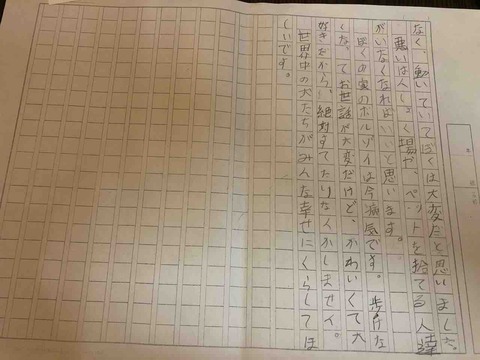 なく、動いていてぼくは大変だと思いました。
悪いはんしょく場や、ペットを捨てる人達
がいなくなればいいと思います。
ぼくの家のボルゾイは今病気です。歩けな
くなってお世話が大変だけど、かわいくて大
好きだから、絶対すてたりなんかしません。
世界中の犬たちがみんな幸せにくらしてほ
しいです。